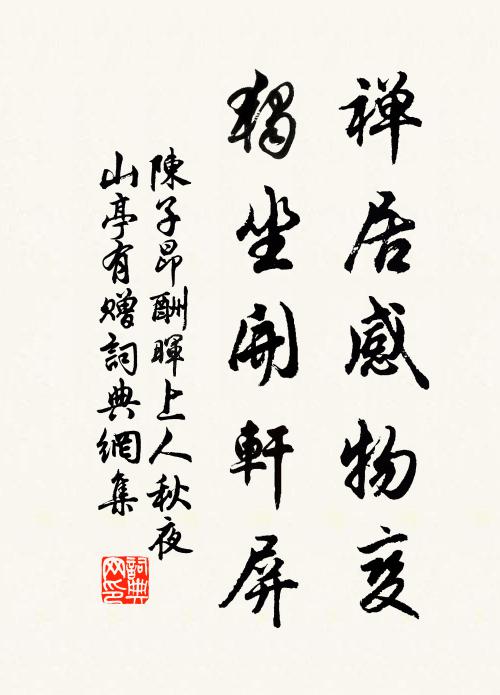 禅居感物变
獨坐開軒屏
陳子昂酬暉上人秋夜
山亭有贈詞典網集
詞典网印